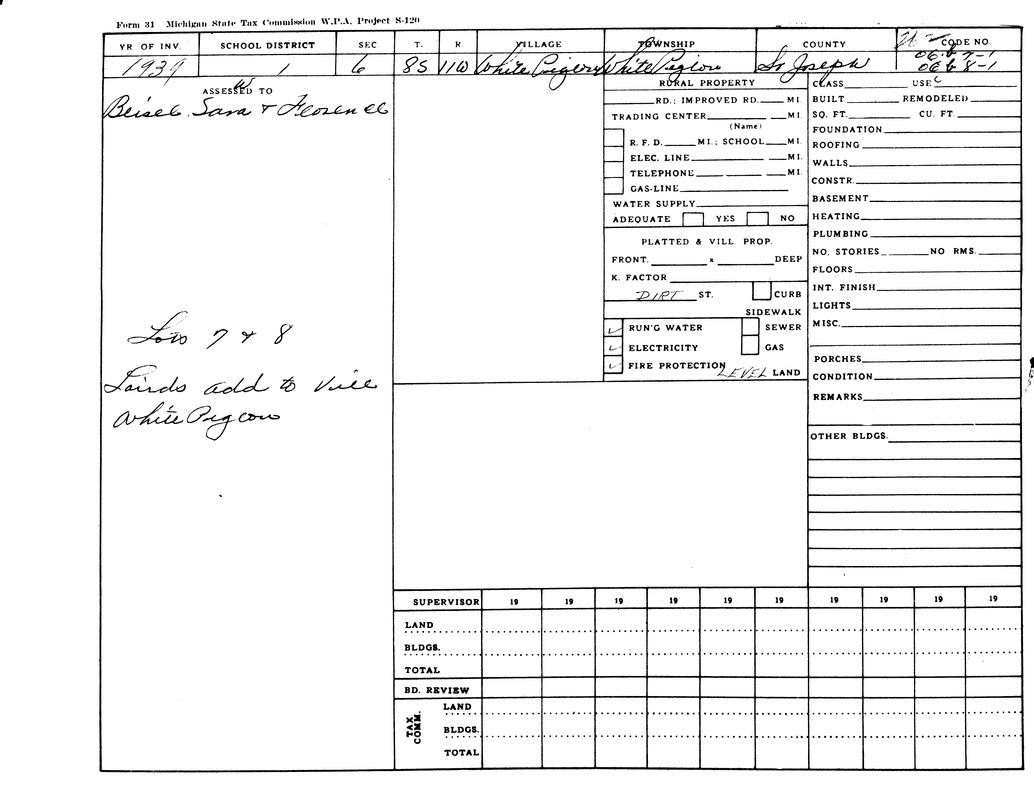 Form 31 Michigan State Tax Commission W.P.A. Project S-120
YR OF INV. SCHOOL DISTRICT SEC T. R. VILLAGE TOWNSHIP COUNTY CODE NO.
1939 1 6 8S 11W White Pigeon White Pigeon St Joseph 06-6-7-1
06-6-8-1
ASSESSED TO
Beisel, Sara & Florence
Lots 7 & 8
Lairds add to Vill
White Pigeon
RURAL PROPERTY
RD.; IMPROVED RD. MI.
TRADING CENTER MI.
(Name)
R. F. D. MI.; SCHOOL MI.
ELEC. LINE MI.
TELEPHONE MI.
GAS-LINE
WATER SUPPLY
ADEQUATE YES NO
PLATTED & VILL PROP.
FRONT. x DEEP
K. FACTOR
DIRT ST. CURB
SIDEWALK
RUN'G WATER SEWER
ELECTRICITY GAS
FIRE PROTECTION LEVEL LAND
CLASS USE
BUILT REMODELED
SQ. FT. CU. FT.
FOUNDATION
ROOFING
WALLS
CONSTR.
BASEMENT
HEATING
PLUMBING
NO. STORIES NO RMS.
FLOORS
INT. FINISH
LIGHTS
MISC.
PORCHES
CONDITION
REMARKS
OTHER BLDGS.
SUPERVISOR 19 19 19 19 19 19 19 19 19 19
LAND
BLDGS.
TOTAL
BD. REVIEW
TAX COMM.
LAND
BLDGS.
TOTAL